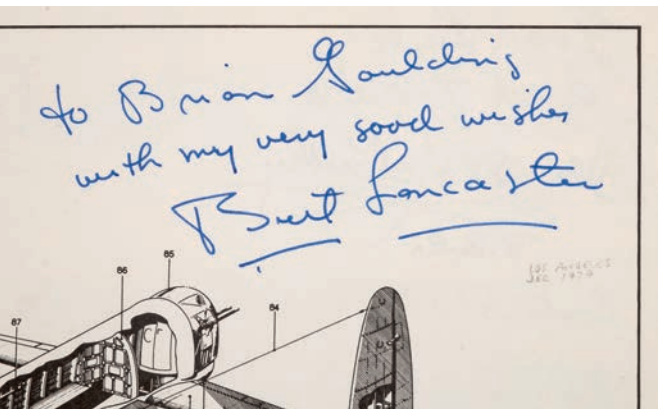 to Brian Goulding
with my very good wishes
Burt Lancaster
LOS ANGELES
1979
85
86
84
87